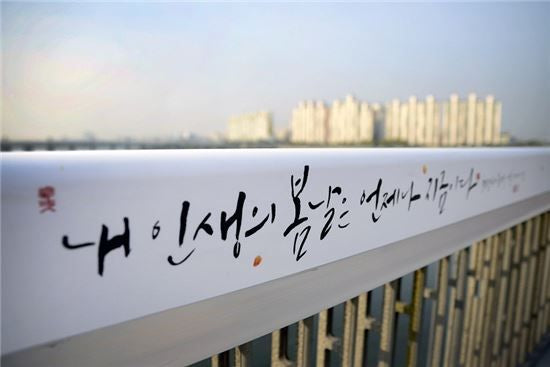 내 인생의 봄날은 언제나 지금이다.